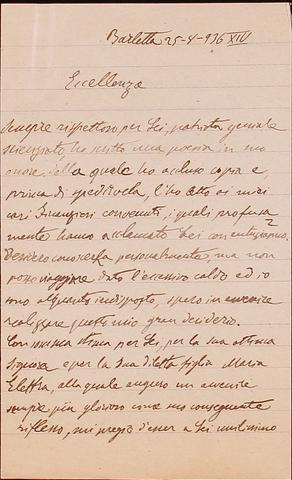 Barletta 25-4-936 XIV
Eccellenza
Sempre rispettoso per Lei, patriota geniale
scienziato, ho scritto una poesia in suo
onore della quale ho accluso copia e,
prima di spedirvela, l'ho letta ai miei
cari convenuti, i quali
mente hanno acclamato Lei con entusiasmo.
Desidero conoscerla personalmente, ma non
posso viaggiare dato l'eccessivo caldo ed io
sono alquanto indisposto, spero in avvenire
realizzare questo mio gran desiderio.
Con stima per Lei, per la sua ottima
signora e per la Sua diletta figlia Maria
Elettra, alla quale auguro un avvenire
sempre più glorioso come conseguente
riflesso, mi pregio d'esser a Lei umilissimo